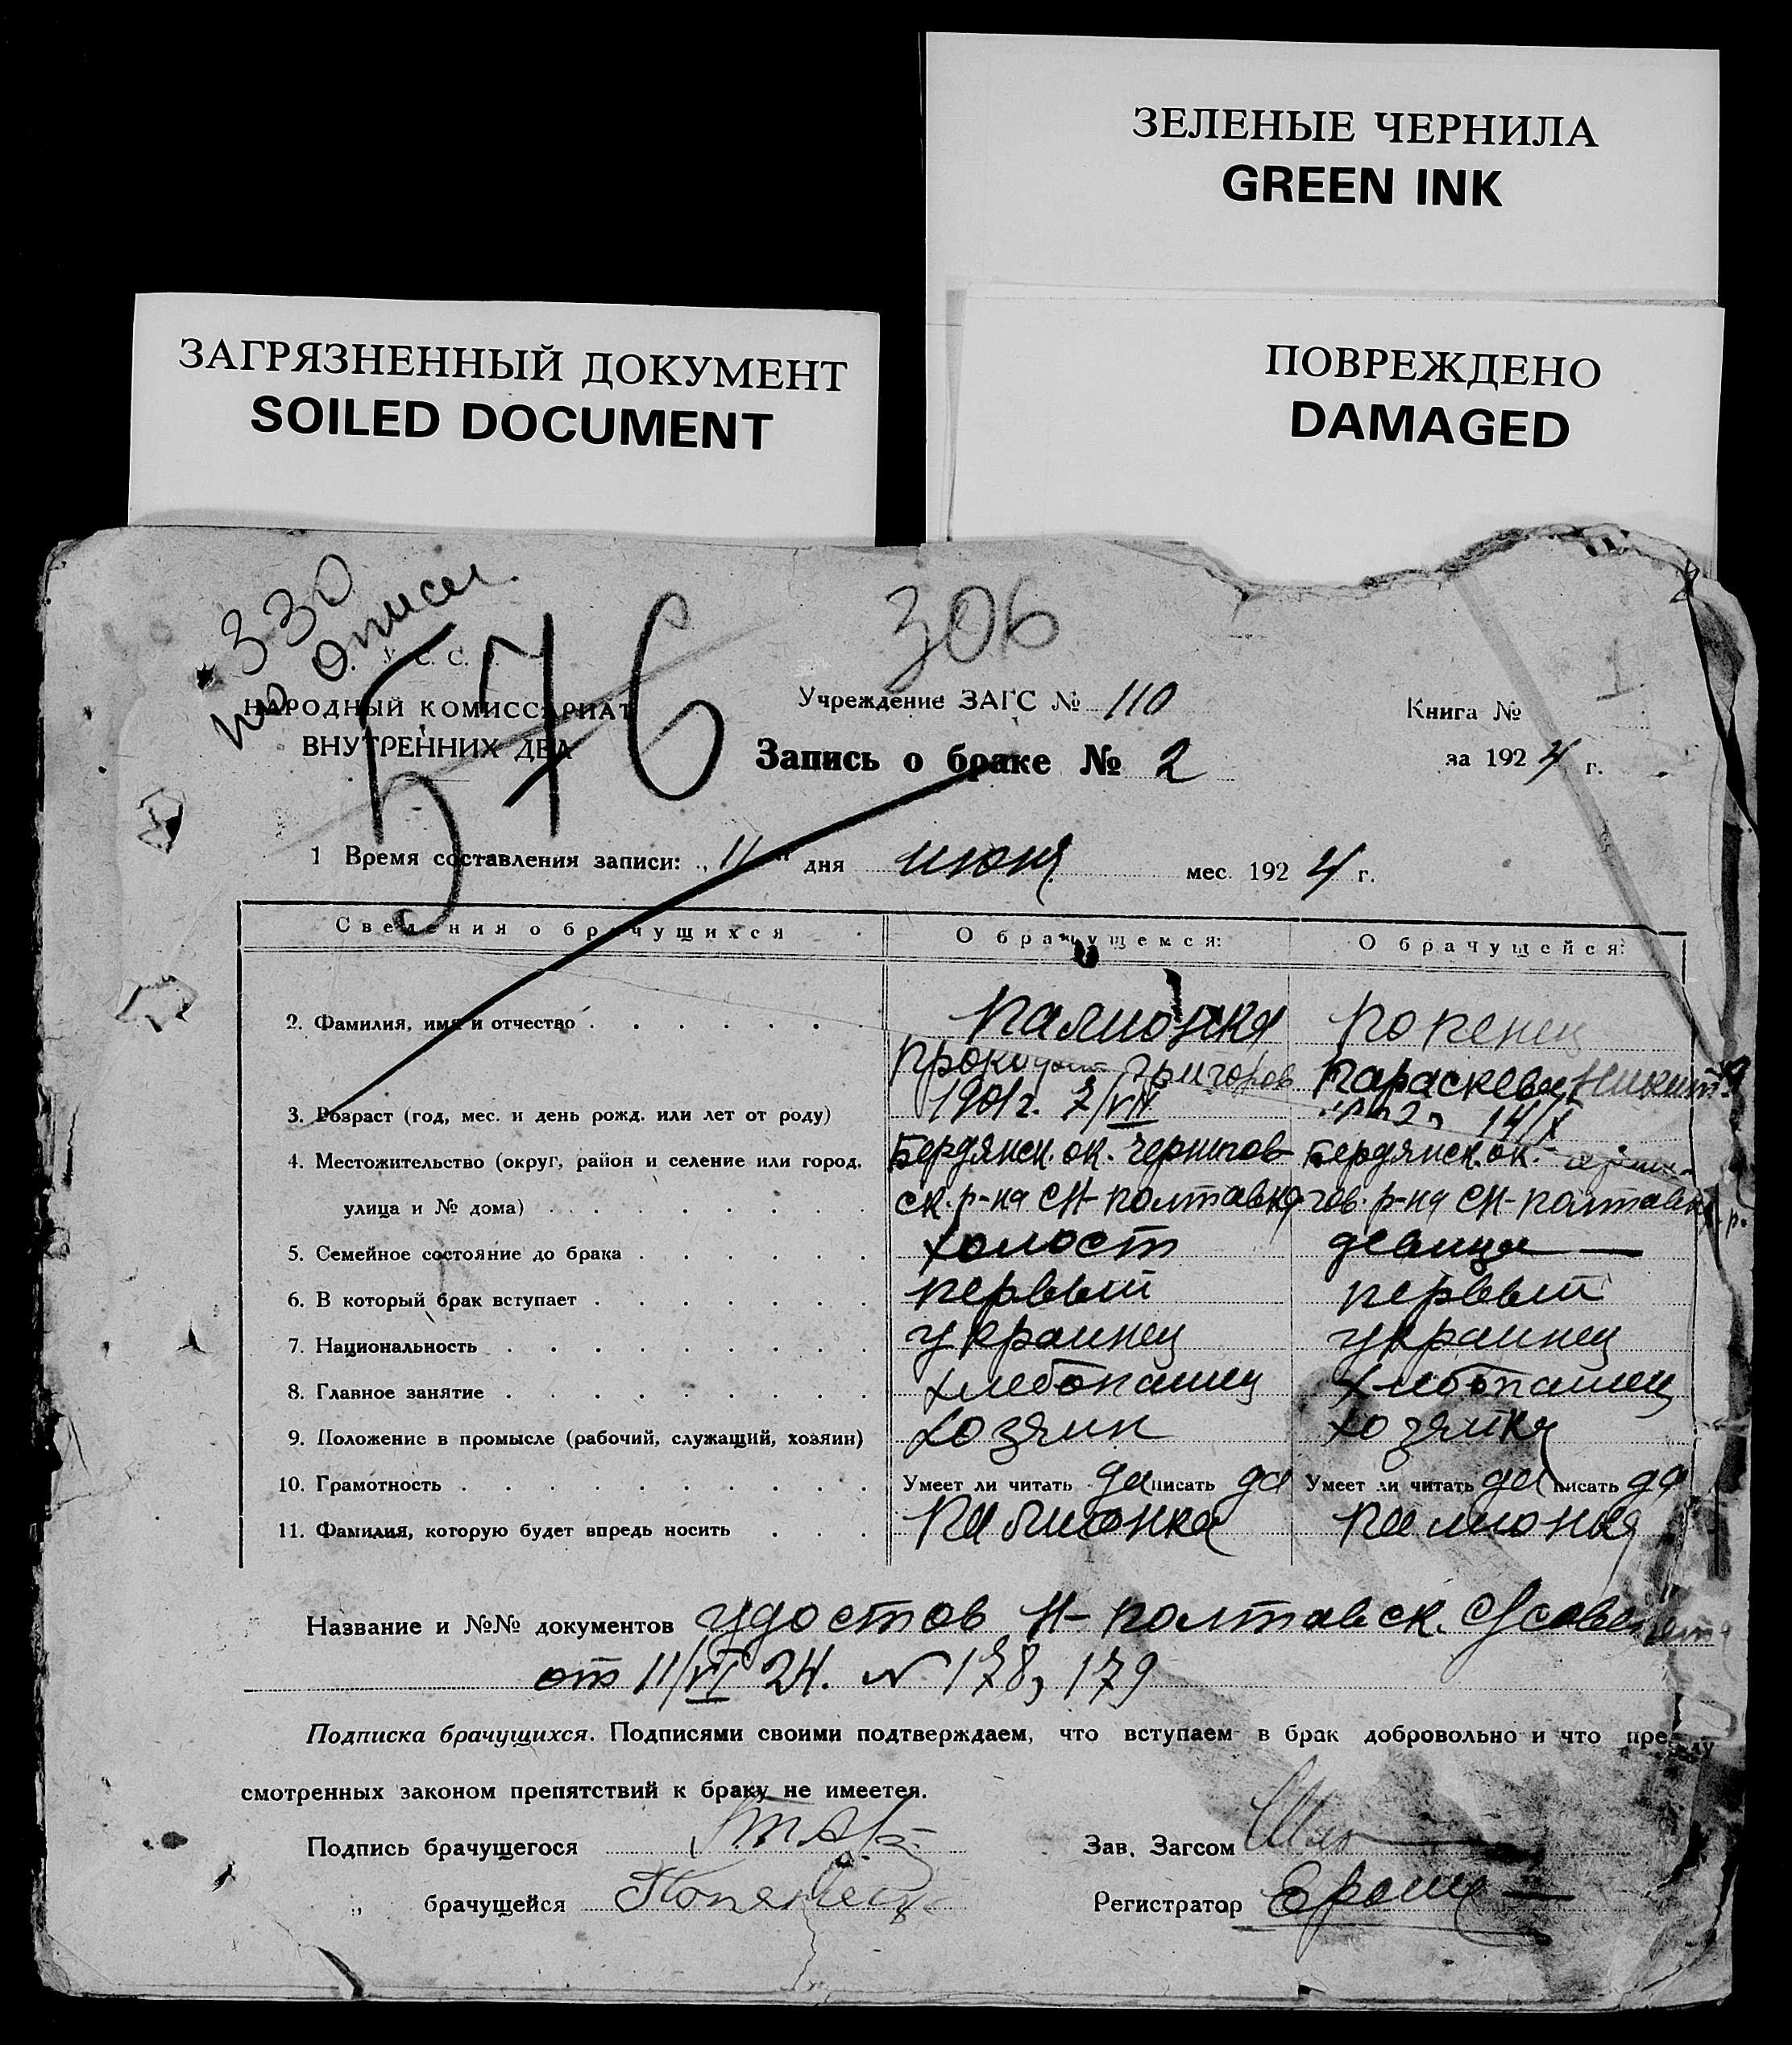 ЗЕЛЕНЫЕ ЧЕРНИЛА
GREEN INK
ЗАГРЯЗНЕННЫЙ ДОКУМЕНТ
SOILED DOCUMENT
ПОВРЕЖДЕНО
DAMAGED
330
по описи
576
306
У. С. С.
НАРОДНЫЙ КОМИССАРИАТ
ВНУТРЕННИХ ДЕЛ
Учреждение ЗАГС № 110
Запись о браке № 2
1
Книга №
за 1924 г.
1 Время составления записи: „11" дня июня мес. 1924 г.
Сведения о брачущихся О брачущемся: О брачущейся:
2. Фамилия, имя и отчество Палионка Попенец
Григоров Параскева Никит
3. Возраст (год, мес. и день рожд. или лет от роду) 1901 г. 7/VII 14/X
4. Местожительство (округ, район и селение или город, Бердянск. ок. Чернигов- Бердянск. ок.
улица и № дома) ск. р-на с Н-Полтавка гов. р-на с Н-Полтавка
5. Семейное состояние до брака холост девица
6. В который брак вступает первый первый
7. Национальность украинец украинец
8. Главное занятие хлебопашец хлебопашец
9. Положение в промысле (рабочий, служащий, хозяин) хозяин хозяйка
10. Грамотность Умеет ли читать да писать да Умеет ли читать да писать да
11. Фамилия, которую будет впредь носить Палионка Палионка
Название и №№ документов удостов Н-Полтавск.
от 11/VI 24. № 178, 179
Подписка брачущихся. Подписями своими подтверждаем, что вступаем в брак добровольно и что преду
смотренных законом препятствий к браку не имеется.
Подпись брачущегося Зав. Загсом
„ брачущейся Попенец Регистратор